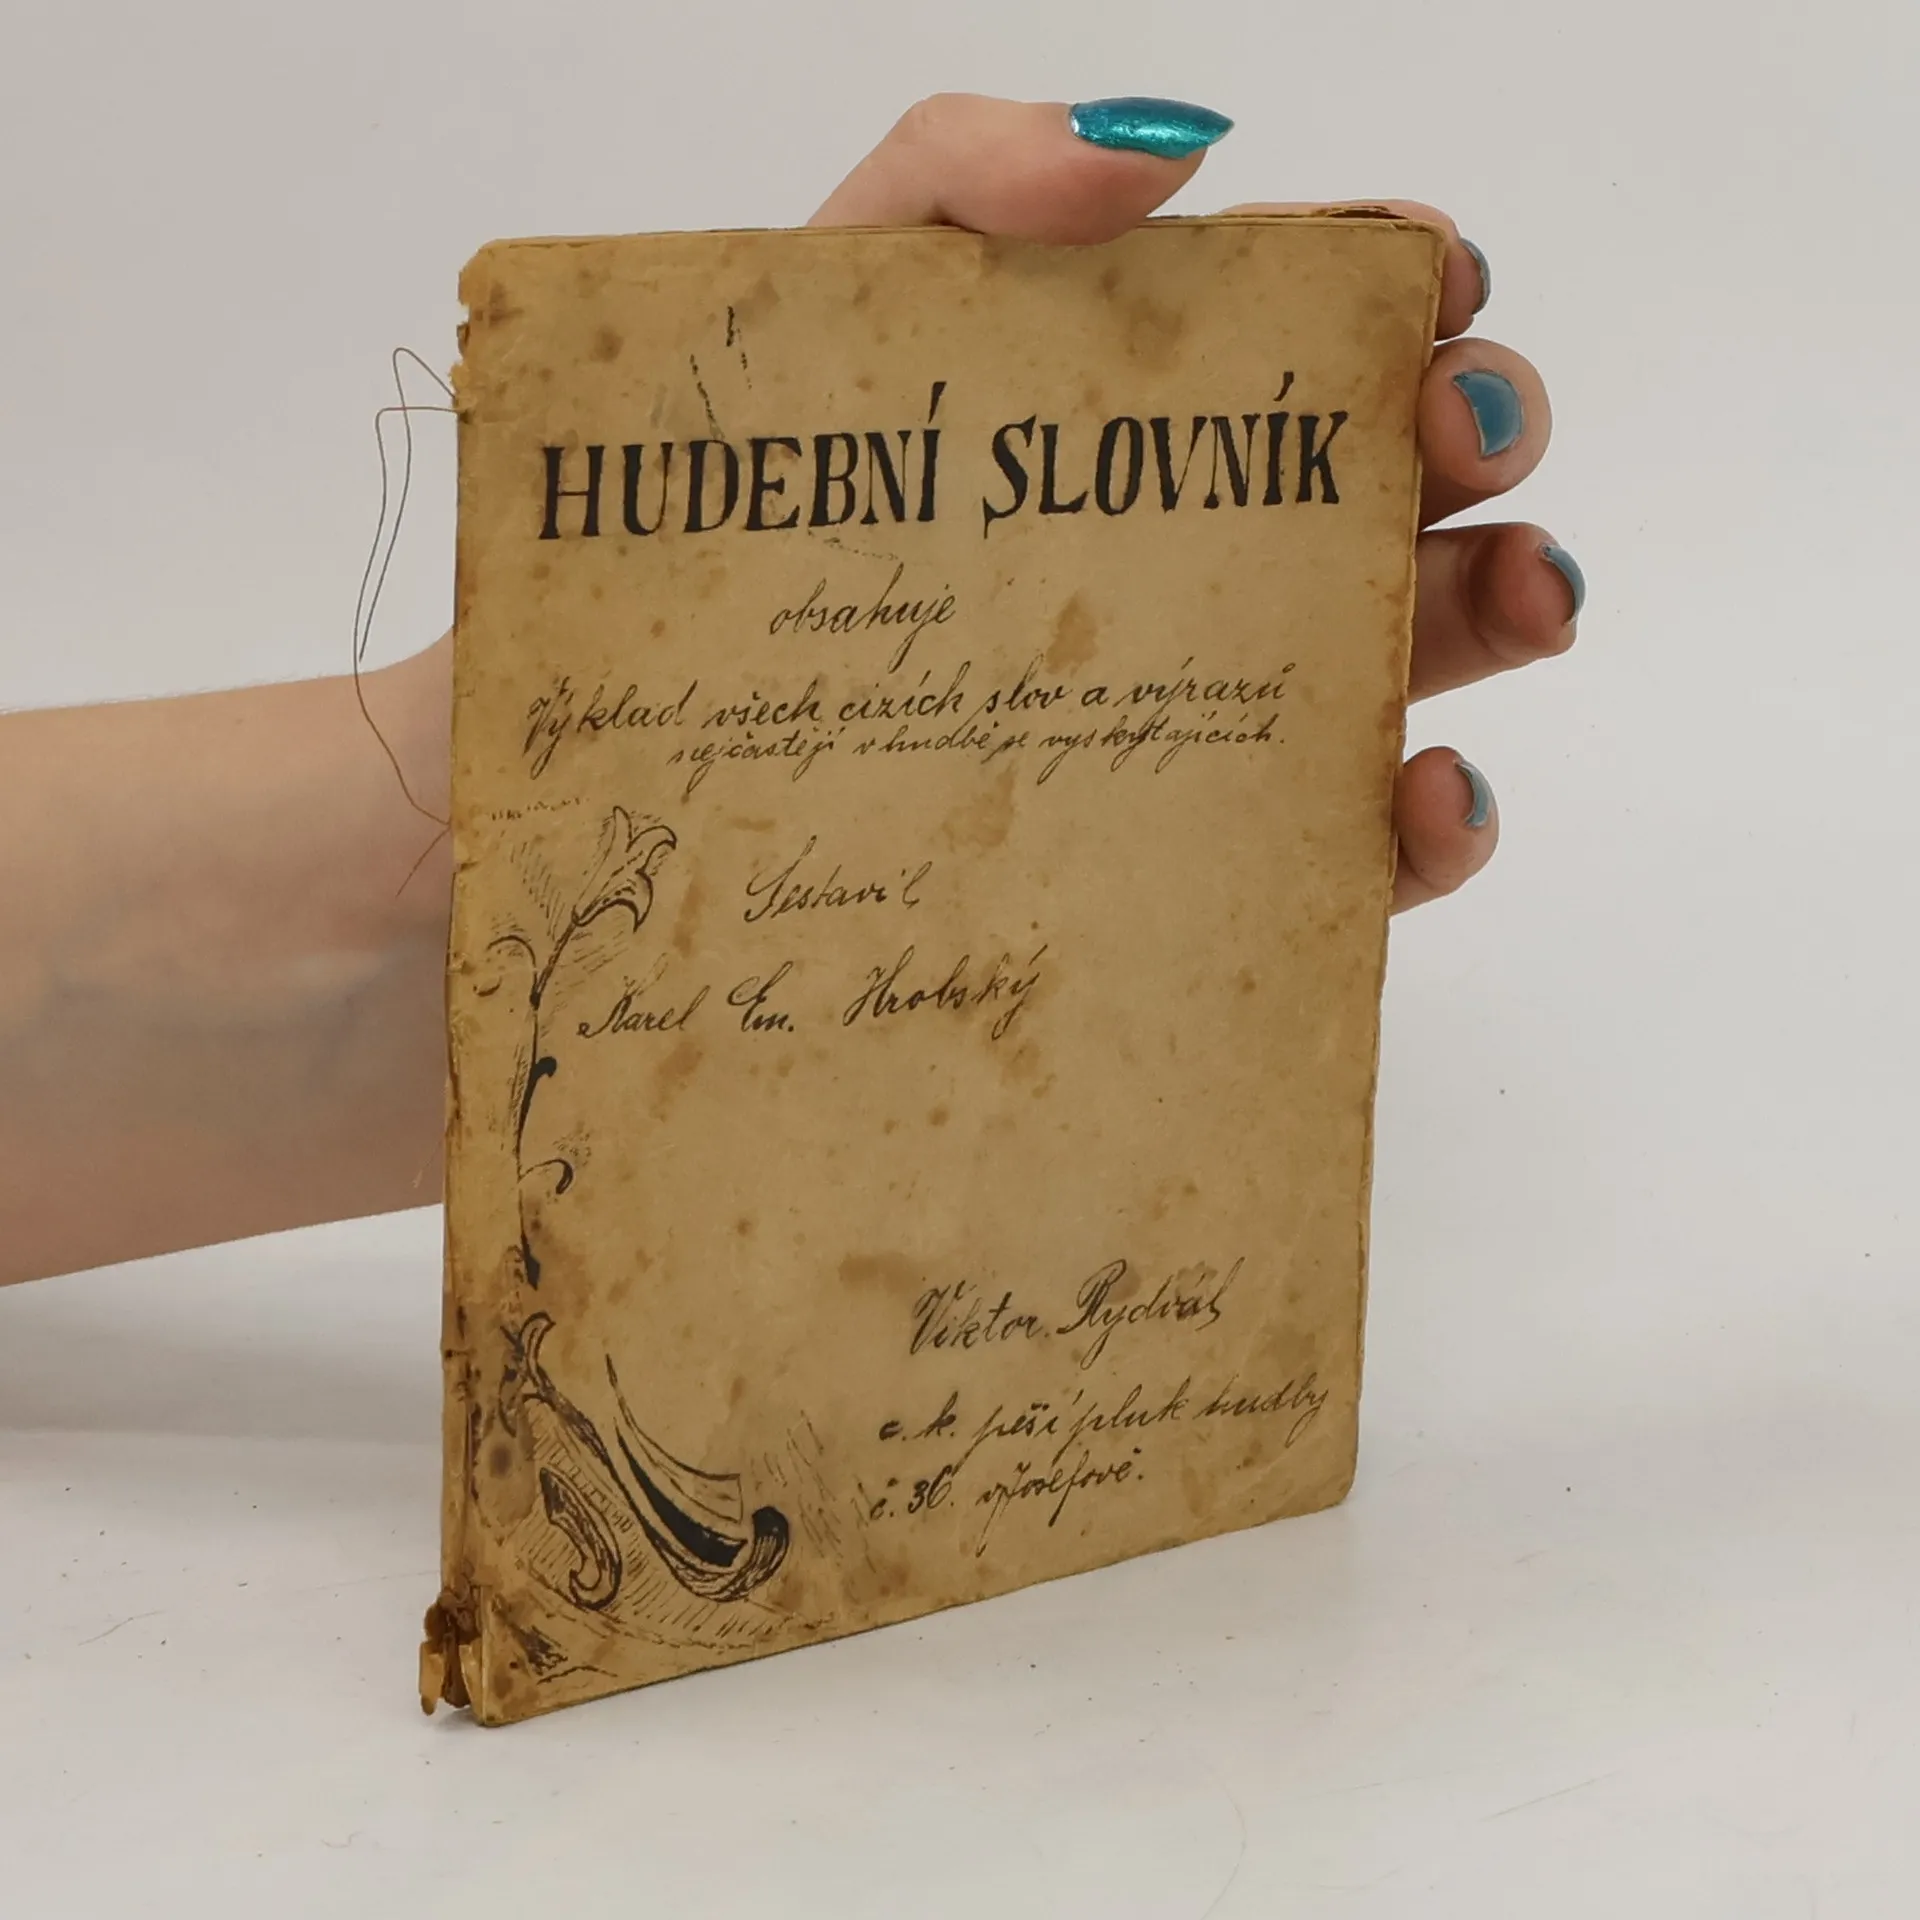 HUDEBNÍ SLOVNÍK
obsahuje
Výklad všech cizích slov a výrazů
nejčastěji v hudbě se vyskytajících.
Sestavil
Karel Em. Hrobský
Viktor Rydvál
c. k. pěší pluk hudby
č. 36. v Josefově.